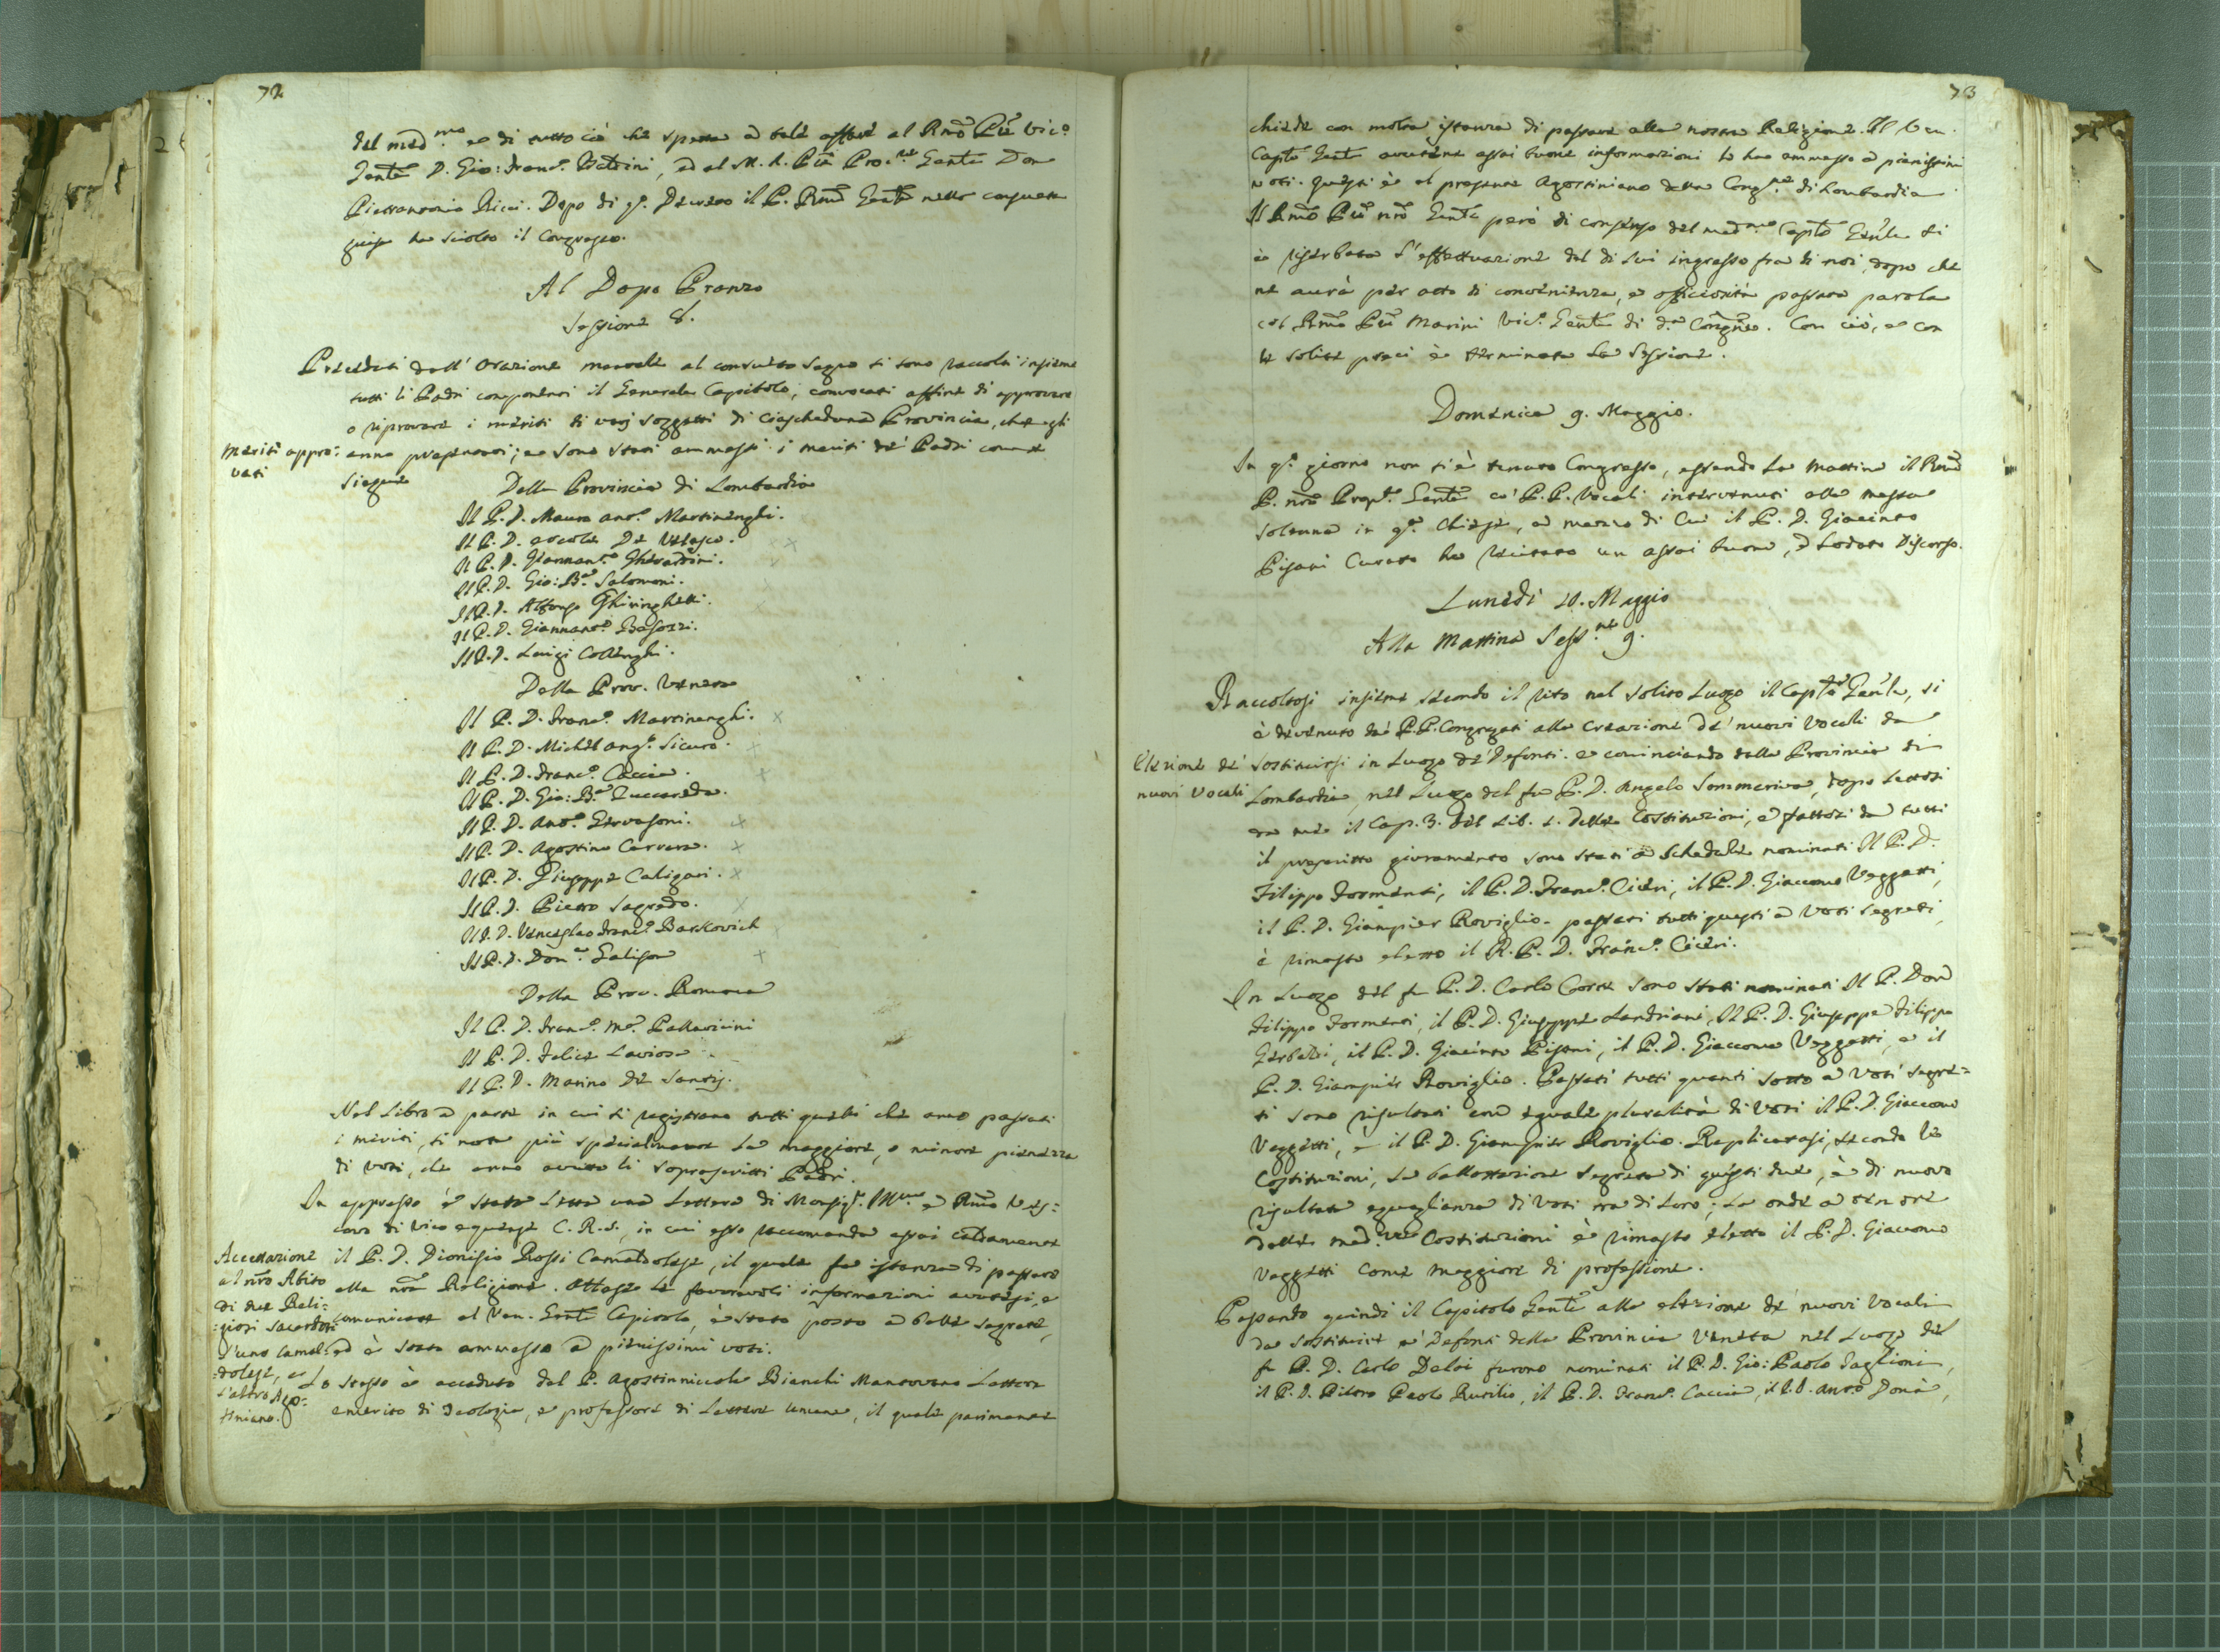 72
del med.mo e di tutto ciò che spetta a tale affare al Rmo Pre Vic.o
Gente D. Gio: Franc.o Petrini, ed al M. R. Pre Proc.re Gente Don
Pietrantonio Ricci. Dopo di q.o Decreto il P. Rmo Gente nella consueta
guisa ha sciolto il Congresso.
Al Dopo Pranzo
Sessione 8.
Preceduti dall' Orazione mentale al consueto segno si sono raccolti insieme
tutti li Padri componenti il Generale Capitolo, convocati affine di approvare
o riprovare i meriti di varj soggetti di ciascheduna Provincia, che egli
Meriti appro:
vati
anno presentati; e sono stati ammessi i meriti de' Padri come
siegue
Della Provincia di Lombardia
Il P. D. Mauro Ant.o Martinenghi.
Il P. D. Ercole De Velasco.
Il P. D. Giannant.o Gherardini.
Il P. D. Gio: B.a Salomoni.
Il P. D. Alfonso Ghiringhelli.
Il P. D. Giannant.o Besozzi.
Il P. D. Luigi Collenghi.
Della Prov. Veneta
Il P. D. Franc.o Martinenghi.
Il P. D. Michel ang.o Sicuro.
Il P. D. Franc.o Caccia.
Il P. D. Gio: B.a Zuccareda.
Il P. D. Ant.o Gervasoni.
Il P. D. Agostino Carrara.
Il P. D. Giuseppe Caligari.
Il P. D. Pietro Sagredo.
Il P. D. Venceslao Franc.o Barscovich
Il P. D. Dom.o Galison
Della Prov. Romana
Il P. D. Franc.o M.a Pallavicini
Il P. D. Felice Laviosa
Il P. D. Marino de Santis.
Nel Libro a parte in cui si registrano tutti quelli che anno passati
i meriti, si nota più specialmente la maggiore, o minore pienezza
di voti, che anno avuto li soprascritti Padri.
In appresso è stata letta una Lettera di Monsig.r Ill.mo e Rmo Ves:
covo di Vico equense C. R. S., in cui esso raccomanda assai caldamente
Accettazione
al nro Abito
di due Reli:
:giosi Sacerdoti
d'uno Camal:
:dolese, e
l'altro Ago:
stiniano.
il P. D. Dionisio Rossi Camaldolese, il quale fa istanza di passare
alla nra Religione. Attese le favorevoli informazioni avutesi, e
comunicate al Ven. Gente Capitolo, è stato posto a balle segrete,
ed è stato ammesso a pienissimi voti.
Lo stesso è accaduto del P. Agostinniccola Bianchi Mantovano Lettore
emerito di Teologia, e professore di Lettere umane, il quale parimente
73
chiede con molta istanza di passare alla nostra Religione. Il Ven.
Capto Gente avutene assai buone informazioni lo ha ammesso a pienissimi
voti. Questi è al presente Agostiniano della Cong.ne di Lombardia
Il Rmo Pre nro Gente però di consenso del med.mo Capto Genle si
è riserbata l'effettuazione del di lui ingresso fra di noi, dopo che
ne aurà per atto di convenienza, e officiosità passata parola
col Rmo Pre Marini Vic.o Gente di d.a Congne. Con ciò, e con
le solite preci è terminata la Sessione.
Domenica 9. Maggio.
In q.o giorno non si è tenuto Congresso, essendo la mattina il Rmo
P. nro Prep.to Gente co' P.P. Vocali intervenuti alla messa
solenne in q.a Chiesa, a mezzo di cui il P. D. Giacinto
Pisani Curato ha recitato un assai buono, e lodato Discorso.
Lunedì 10. Maggio
Alla Mattina Sess.ne 9.
Raccoltosi insieme secondo il rito nel solito Luogo il Capto Genle, si
è devenuto da' P.P. Congregati alla creazione de' nuovi Vocali da
Elezione de'
nuovi Vocali
sostituirsi in Luogo de' Defonti. e cominciando dalla Provincia di
Lombardia, nel Luogo del fu P. D. Angelo Sommariva, dopo lettosi
da me il Cap. 3. del Lib. 1. delle Costituzioni, e fattosi da tutti
il prescritto giuramento sono stati a schedule nominati Il P. D.
Filippo Formenti, il P. D. Franc.o Ciceri, il P. D. Giacomo Veggetti,
il P. D. Giampier Roviglio. passati tutti questi a voti segreti,
è rimasto eletto il R. P. D. Franc.o Ciceri.
In Luogo del fu P. D. Carlo Corte sono stati nominati Il P. Don
Filippo Formenti, il P. D. Giuseppe Landriani, Il P. D. Giuseppe Filippo
Gerbaldi, il P. D. Giacinto Pisani, il P. D. Giacomo Veggetti, e il
P. D. Giampier Roviglio. Passati tutti quanti sotto a voti segre=
ti sono risultati con eguale pluralità di voti il P. D. Giacomo
Veggetti, e il P. D. Giampier Roviglio. Replicatasi, secondo le
Costituzioni, la ballottazione segreta di questi due, è di nuovo
risultata eguaglianza di voti tra di Loro; la onde a tenore
delle med.me Costituzioni è rimasto eletto il P. D. Giacomo
Veggetti come maggiore di professione.
Passando quindi il Capitolo Gente alla elezione de' nuovi Vocali
da sostituire a' Defonti della Provincia Veneta nel Luogo del
fu P. D. Carlo Daloi furono nominati il P. D. Gio: Paolo Taglioni,
il P. D. Pietro Paolo Rusilio, il P. D. Franc.o Caccia, il P. D. Anto Donà,